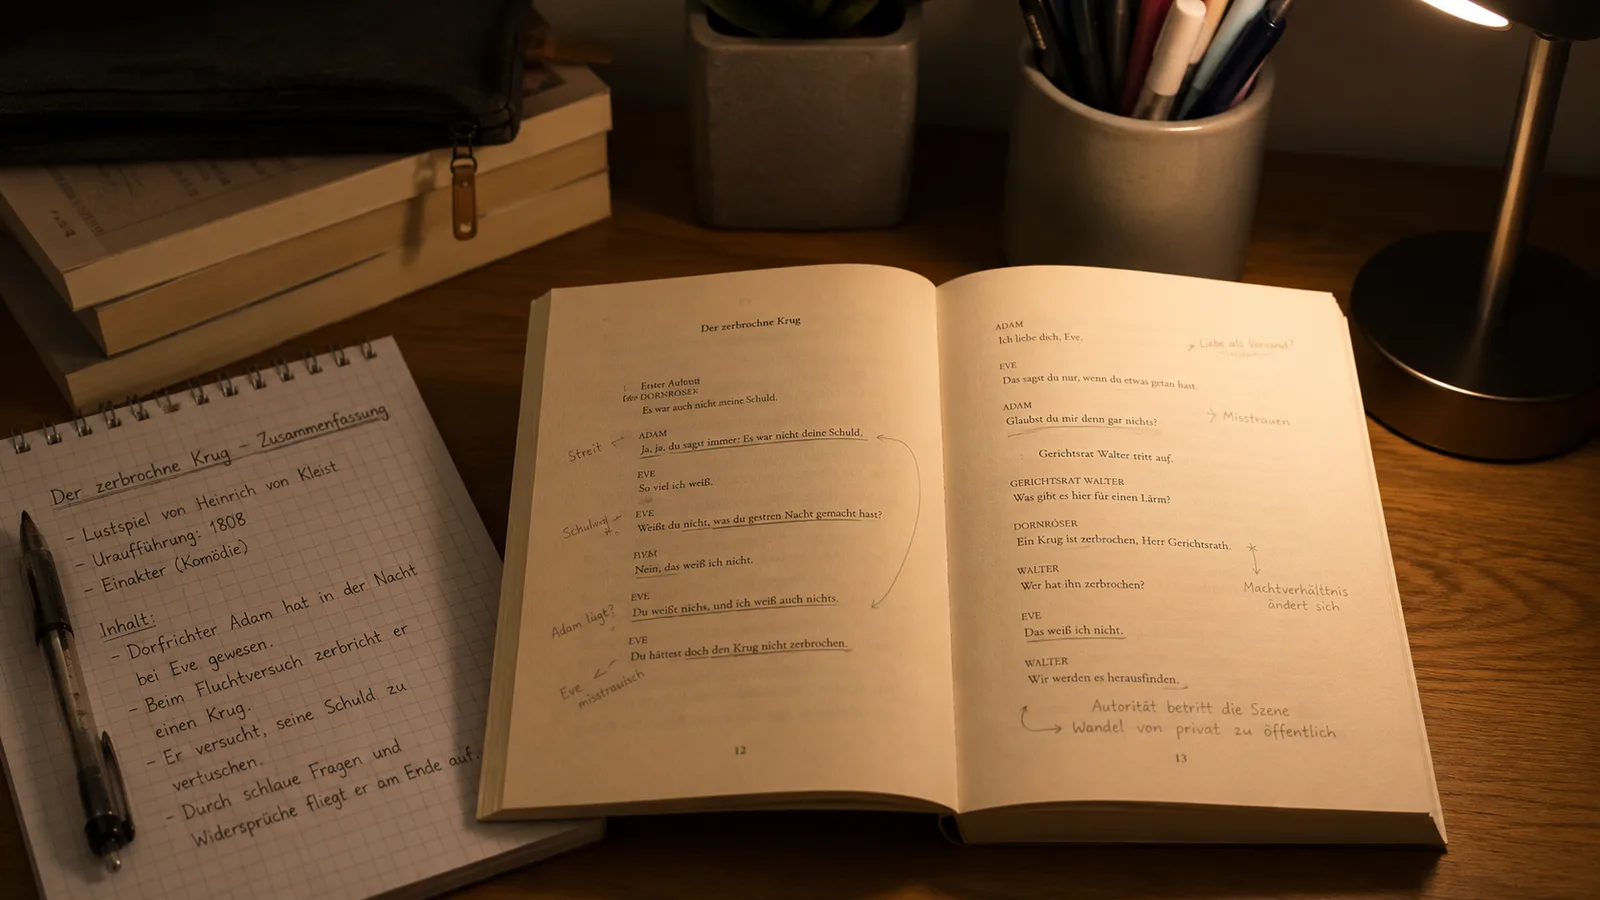 Der zerbrochne Krug – Zusammenfassung
- Lustspiel von Heinrich von Kleist
- Uraufführung: 1808
- Einakter (Komödie)
Inhalt:
- Dorfrichter Adam hat in der Nacht
bei Eve gewesen.
- Beim Fluchtversuch zerbricht er
einen Krug.
- Er versucht, seine Schuld zu
vertuschen.
- Durch schlaue Fragen und
Widersprüche fliegt er am Ende auf.
Der zerbrochne Krug
Erster
DORNRÖSER
Es war auch nicht meine Schuld.
ADAM
Ja, ja, du sagst immer: Es war nicht deine Schuld.
Streit
EVE
So viel ich weiß.
EVE
Weißt du nicht, was du gestren Nacht gemacht hast?
Nein, das weiß ich nicht.
EVE
Du weißt nichs, und ich weiß auch nichts.
Adam lügt?
EVE
Du hättest doch den Krug nicht zerbrochen.
Eve
misstrauisch
12
ADAM
Ich liebe dich, Eve.
Liebe als Vorwand?
EVE
Das sagst du nur, wenn du etwas getan hast.
ADAM
Glaubst du mir denn gar nichts?
Misstrauen
Gerichtsrat Walter tritt auf.
GERICHTSRAT WALTER
Was gibt es hier für einen Lärm?
DORNRÖSER
Ein Krug ist zerbrochen, Herr Gerichtsrath.
WALTER
Wer hat ihn zerbrochen?
Machtverhältnis
ändert sich
EVE
Das weiß ich nicht.
WALTER
Wir werden es herausfinden.
Autorität betritt die Szene
Wandel von privat zu öffentlich
13